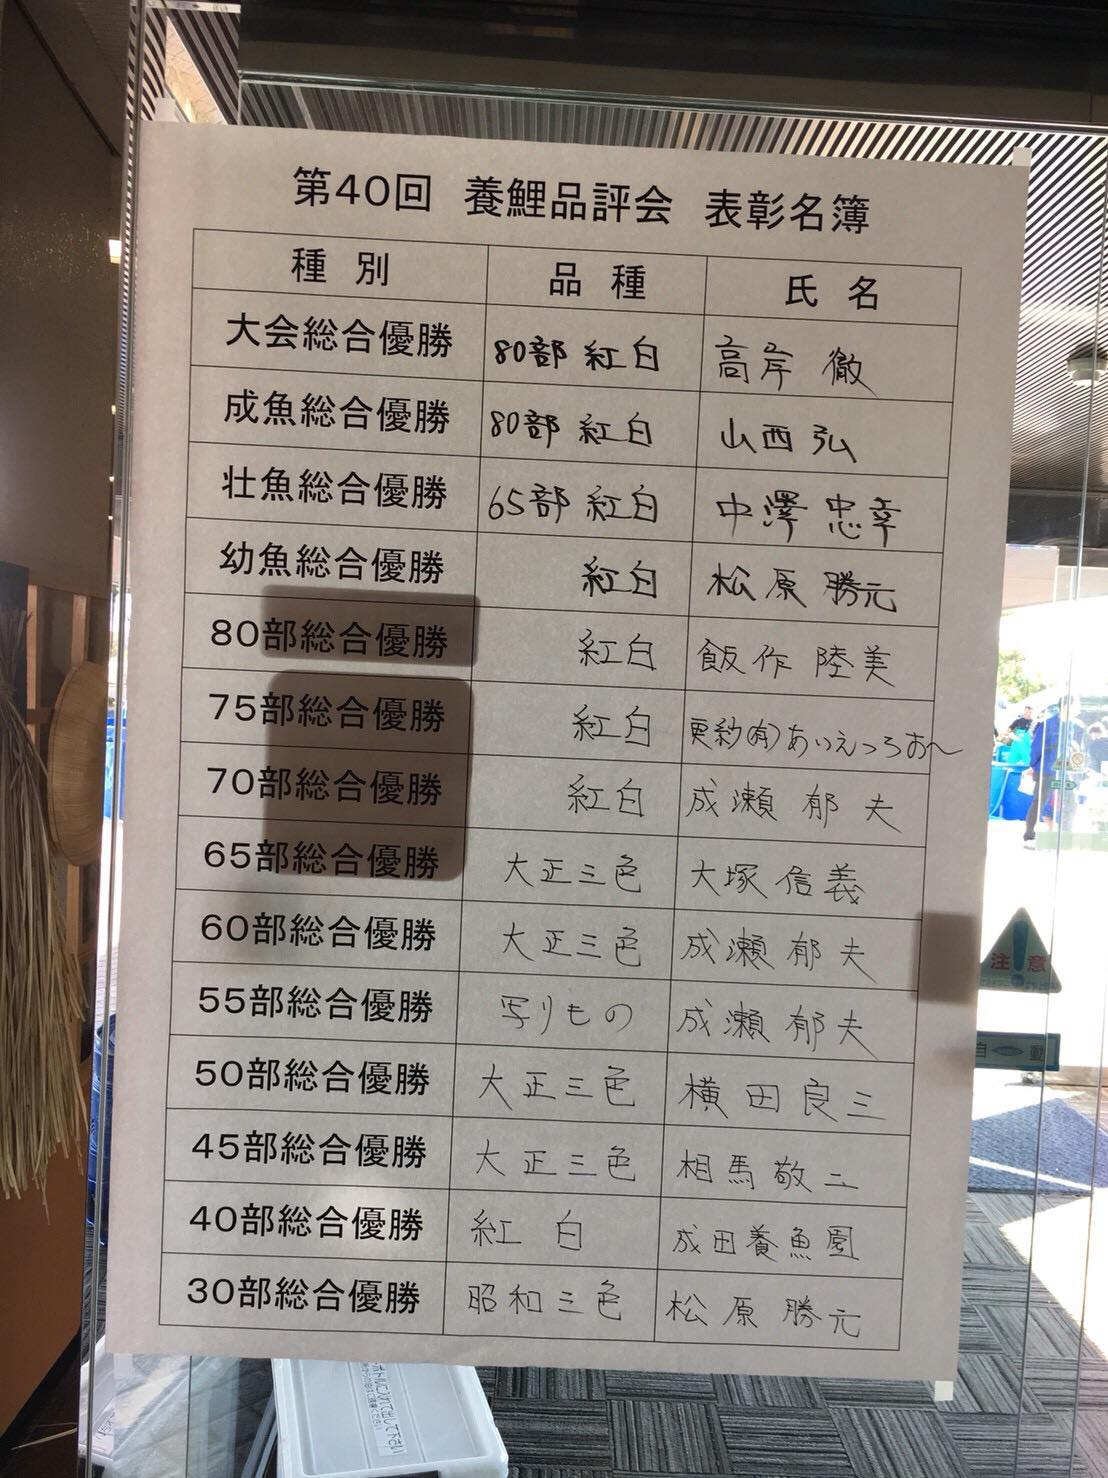 第40回 養鯉品評会 表彰名簿
種別 品種 氏名
大会総合優勝 80部 紅白 高岸 徹
成魚総合優勝 80部 紅白 山西 弘
壮魚総合優勝 65部 紅白 中澤 忠幸
幼魚総合優勝 紅白 松原 勝元
80部総合優勝 紅白 飯作 陸美
75部総合優勝 紅白 ㈲あいえっろお〜
70部総合優勝 紅白 成瀬 郁夫
65部総合優勝 大正三色 大塚信義
60部総合優勝 大正三色 成瀬 郁夫
55部総合優勝 写りもの 成瀬 郁夫
50部総合優勝 大正三色 横田良三
45部総合優勝 大正三色 相馬敬二
40部総合優勝 紅白 成田養魚園
30部総合優勝 昭和三色 松原 勝元
注意
自動